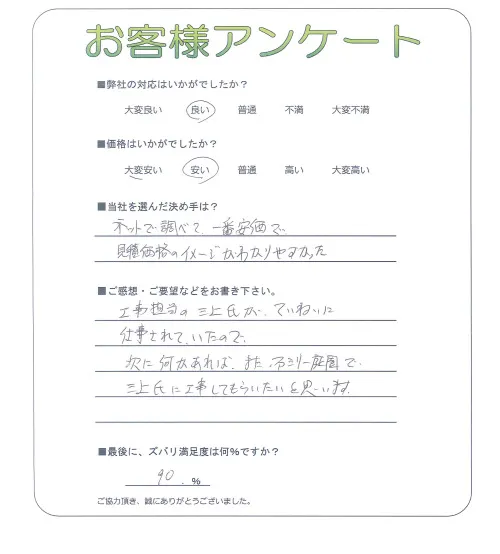 お客様アンケート
■弊社の対応はいかがでしたか?
大変良い 良い 普通 不満 大変不満
■価格はいかがでしたか?
大変安い 安い 普通 高い 大変高い
■当社を選んだ決め手は?
ネットで調べて、一番安価で、
見積価格のイメージがわかりやすかった
■ご感想・ご要望などをお書き下さい。
工事担当の三上氏が、ていねいに
仕事されて、いたので、
次に何かあれば、また、ファミリー庭園で、
三上氏に工事してもらいたいと思います。
■最後に、ズバリ満足度は何%ですか?
90.%
ご協力頂き、誠にありがとうございました。